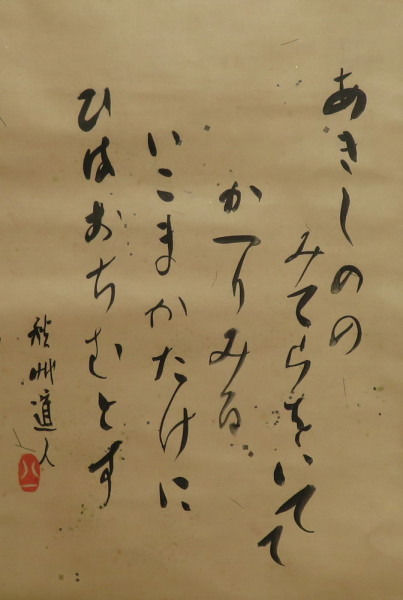 あきしのの
みてらをいてて
かへりみる
いこまかたけに
ひはおちむとす
秋艸道人
八一